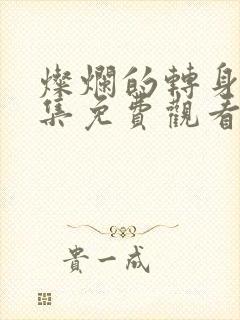 燦爛的轉身
集免費觀看
貴一成